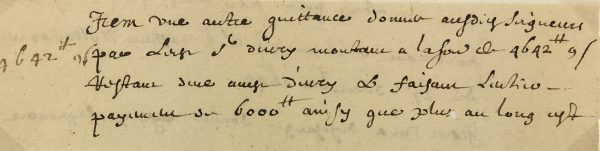 Item une autre quittance donnee ausdits seigneurs
4642ᵗᵗ 9ˢ par Sʳ divry montant a la so[m]e de 4642ᵗᵗ 9ˢ
Restant due divry & faisant
payement de 6000ᵗᵗ ainsy que plus au long est